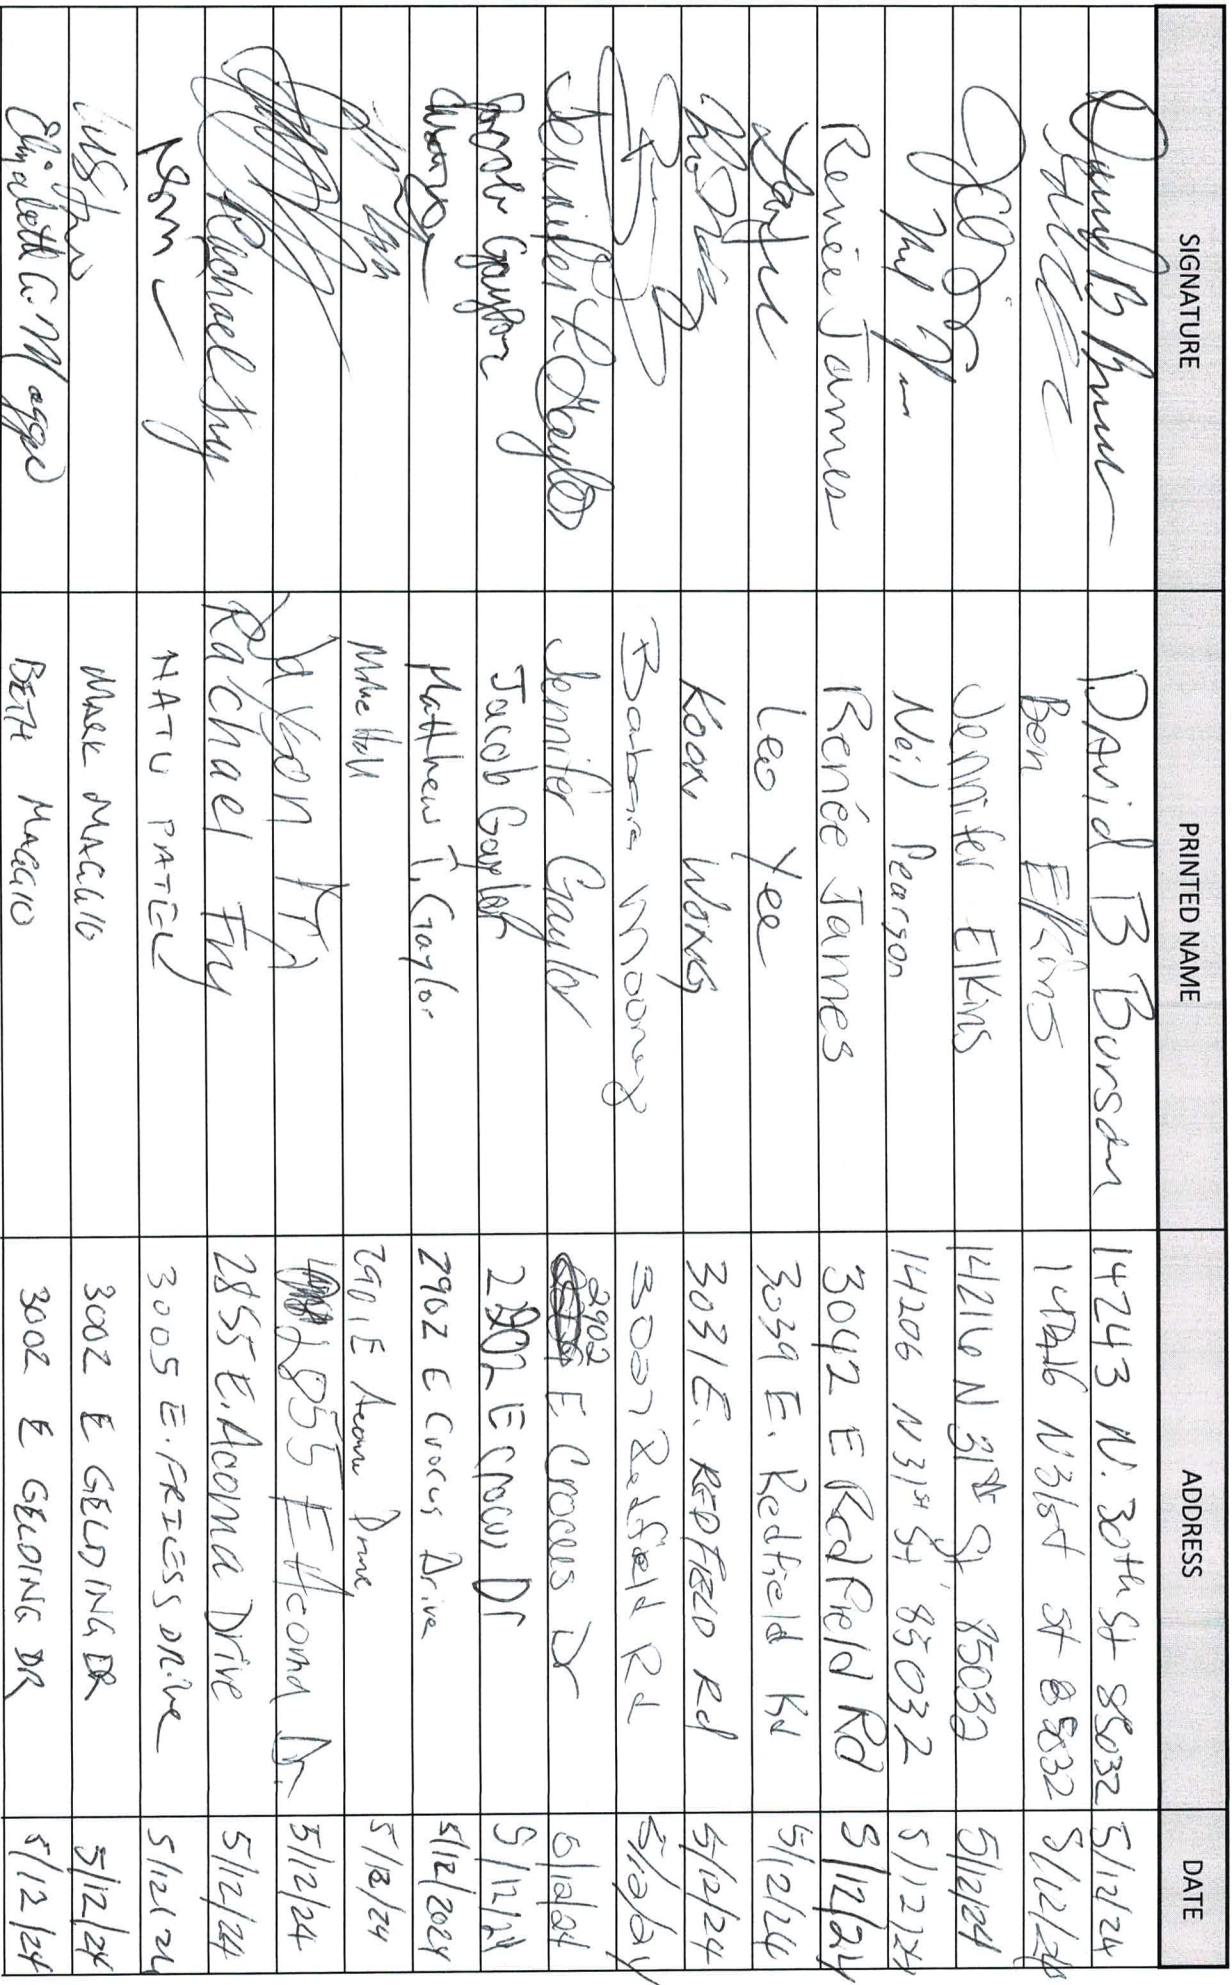 SIGNATURE PRINTED NAME ADDRESS DATE
David B Burson 14243 N. 30th St 85032 5/12/24
Ben Elkins 14216 N 31st St 85032 5/12/24
Jennifer Elkins 14216 N 31st St, 85032 5/12/24
Neil Pearson 14206 N 31st St, 85032 5/12/24
Renée Jannes Renée Jannes 3042 E Redfield Rd 5/12/24
Leo Yee 3039 E. Redfield Rd 5/12/24
KOON WONG 3031 E. REDFIELD Rd 5/12/24
Barbara Mooney 3007 Redfield Rd 5/12/24
Jennifer L Gaylor Jennifer Gaylor 2902 E Crocus Dr 5/12/24
Jacob Gaylor Jacob Gaylor 2902 E Crocus Dr 5/12/24
Matthew T. Gaylor 2902 E Crocus Drive 5/12/2024
Mike Hall 2901 E Acoma Drive, 5/12/24
2855 E Acoma Dr. 5/12/24
Rachael Fry Rachael Fry 2855 E. Acoma Drive 5/12/24
NATU PATEL 3005 E. FRIESS DRive 5/12/24
MARK MAGGIO 3002 E GELDING DR 5/12/24
Elizabeth A. Maggio BETH MAGGIO 3002 E GELDING DR 5/12/24